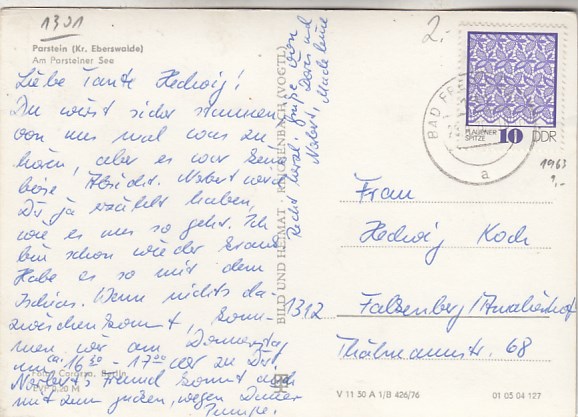 1301
Parstein (Kr. Eberswalde)
Am Parsteiner See
Liebe Tante Hedwig!
Du wirst sicher staunen
von uns mal was zu
hören, aber es war keine
böse Absicht. Norbert wird
Dir ja erzählt haben,
wie es uns so geht. Ich
bin schon wieder krank
Habe es so mit dem
Ischias. Wenn nichts da-
zwischen kommt, kom-
men wir am Donnerstag
um ca 16 30 - 17 00 vor zu Dir
Norberts Freund kommt auch
mit zum gucken, wegen Deiner
Foto: Darr, Berlin
EVP 0,20 M
Recht herzl. Grüße von
Doris und
Norbert,
BILD UND HEIMAT REICHENBACH (VOGTL)
2.-
BAD FR
a
PLAUENER
SPITZE
10
DDR
1963
1,-
Frau
Hedwig Koch
1312
Falkenberg/
Thälmannstr. 68
V 11 50 A 1/B 426/76
01 05 04 127